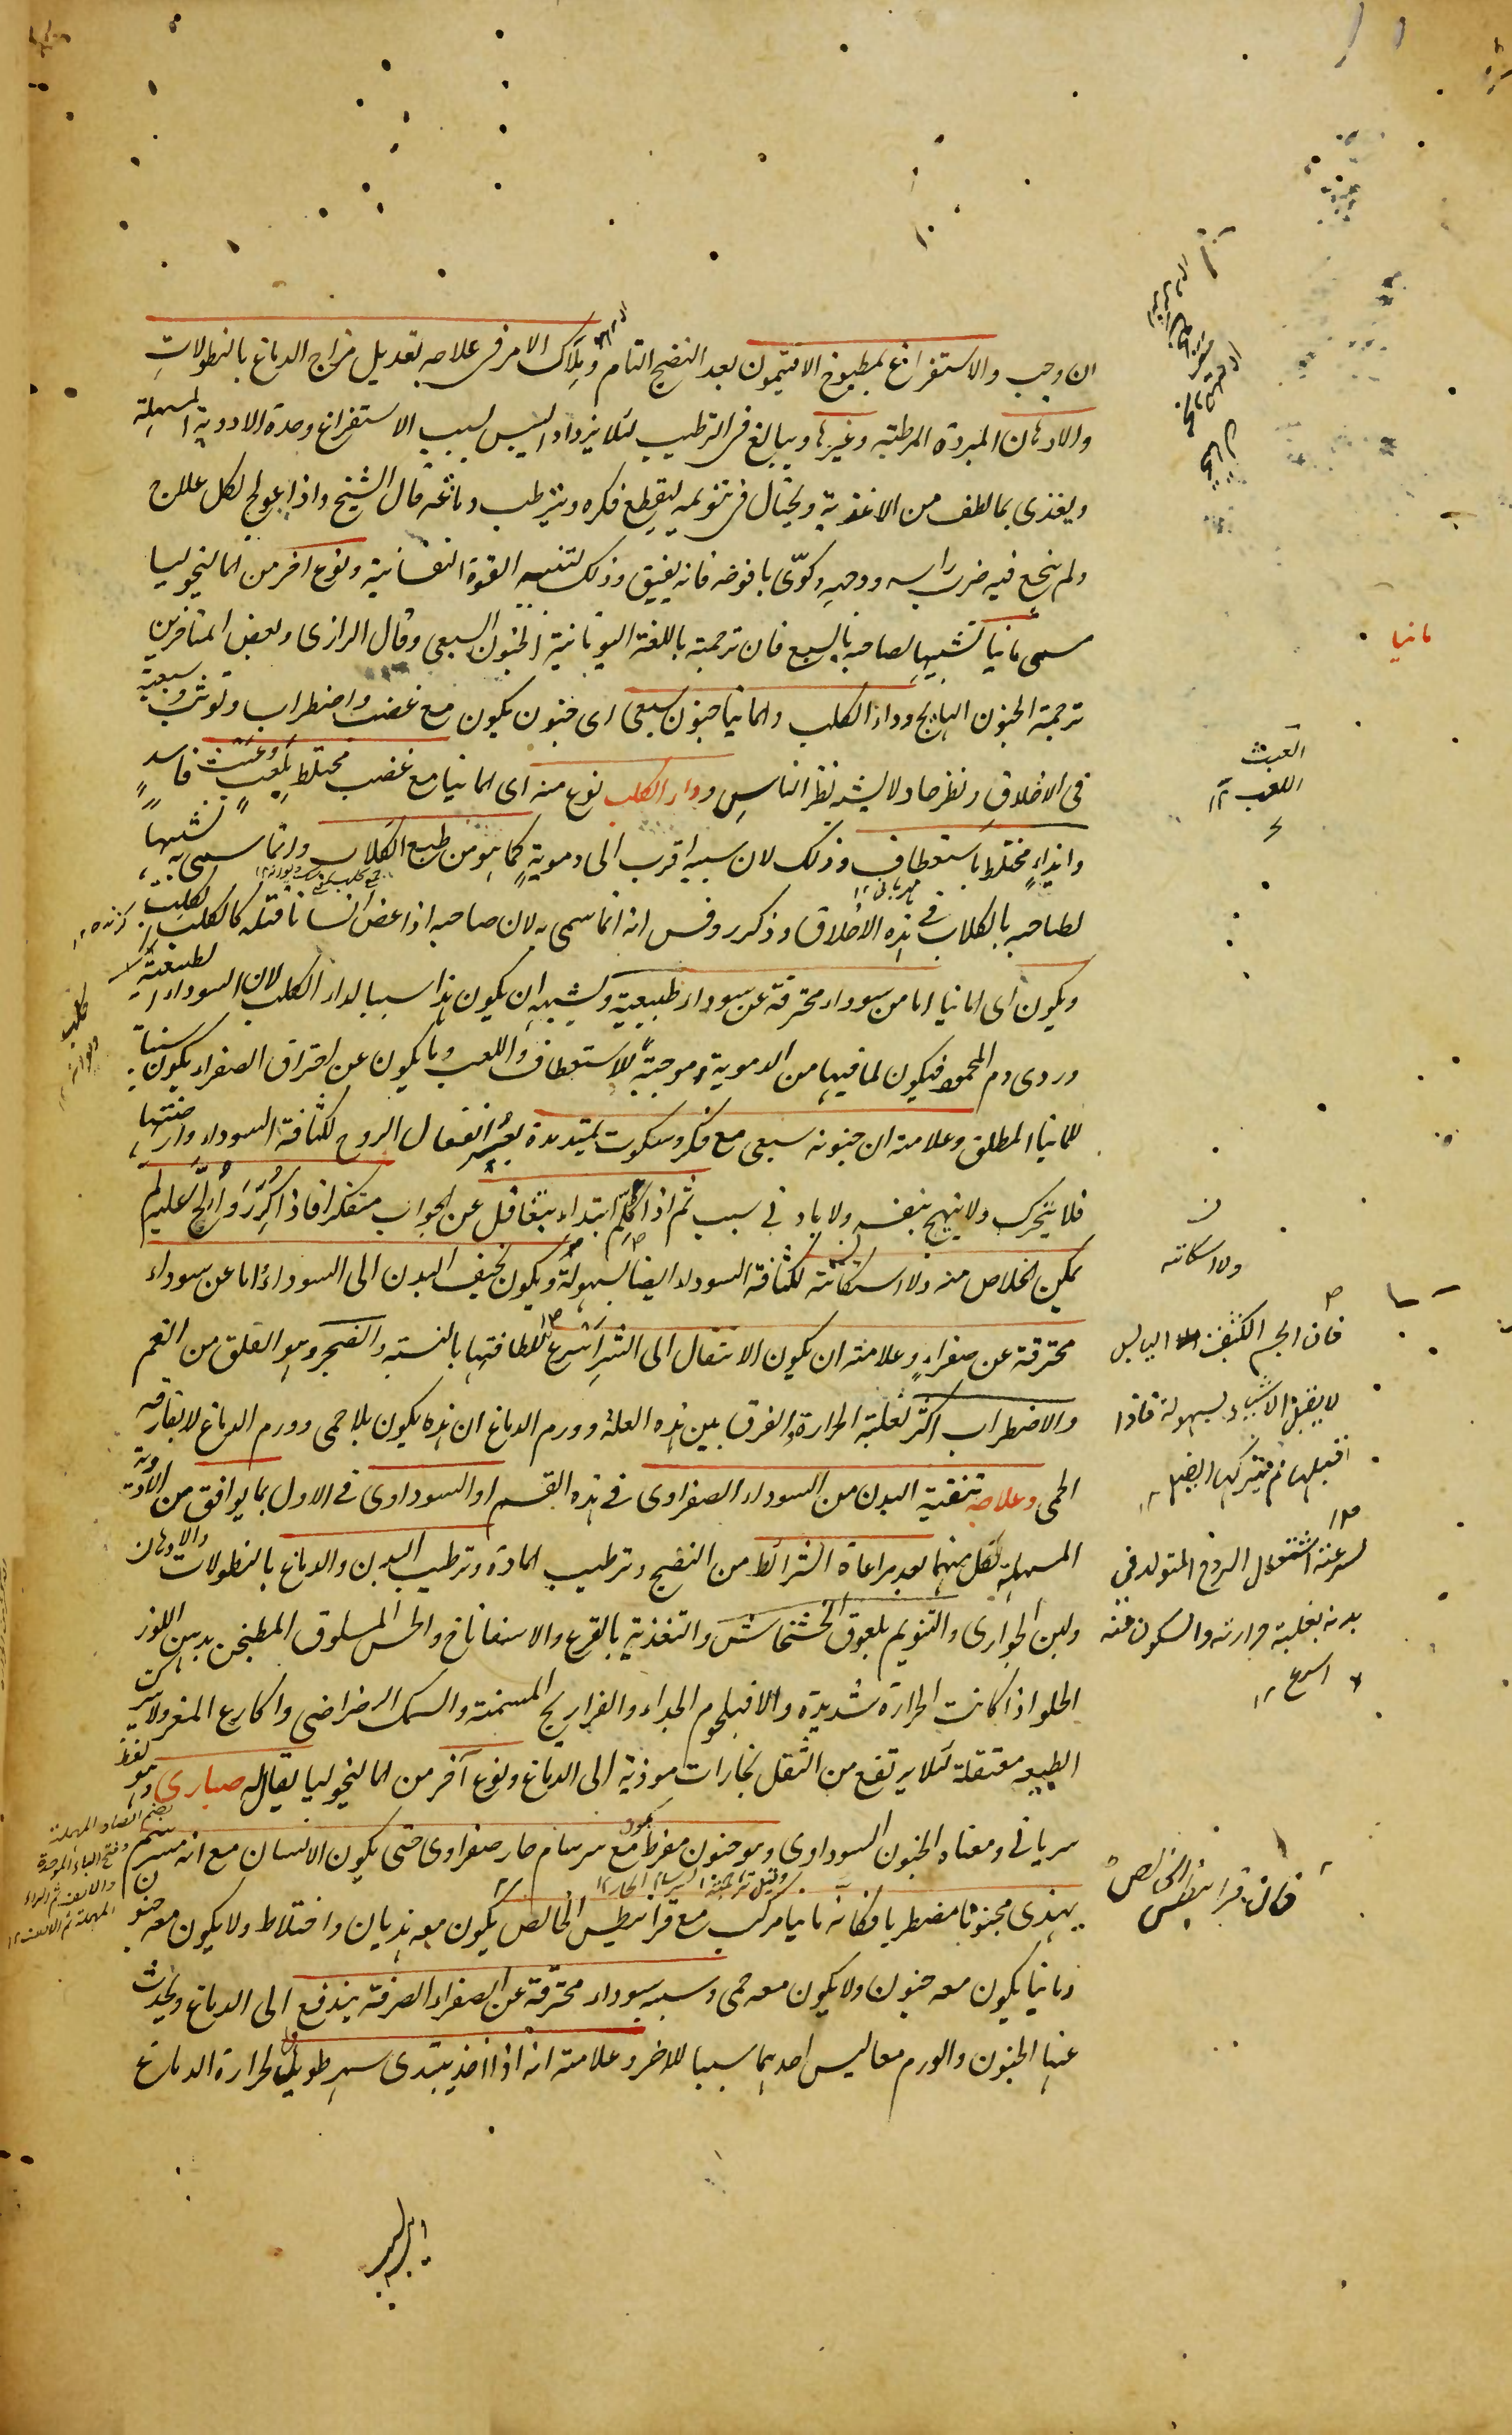 ان وجب والاستفراغ بمطبوخ الافتيمون بعد النضج التام وملاك الامر فى علاجه تعديل مزاج الدماغ بالنطولات
والادهان المبردة المرطبة وغيرها ويبالغ فى الترطيب لئلا يزداد اليبس بسبب الاستفراغ وحدة الادوية المسهلة
ويغذى بما لطف من الاغذية ويحتال فى تنويمه ليقطع فكره ويترطب دماغه قال الشيخ واذا عولج لكل علاج
ولم ينجع فيه ضرب راسه ووجهه وكوّى يافوخه فانه يفيق وذلك لتنبه القوة النفسانية ونوع آخر من المالنخوليا
سمى مانيا تشبيها لصاحبه بالسبع فان ترجمته باللغة اليونانية الجنون السبعى وقال الرازى وبعض المتاخرين
ترجمة الجنون الهايج وداء الكلب والمانيا جنون سبعى اى جنون يكون مع غضب واضطراب وتوثب وسبعية
فى الاخلاق ونظر حاد لا يشبه نظر الناس وداء الكلب نوع منه اى المانيا مع غضب مختلط بلعب وعبث فاسد
وايذاء مختلط باستعطاف وذلك لان سببه اقرب الى دموية كما هو من طبع الكلاب وانما سمى به تشبيها
لصاحبه بالكلاب فى هذه الاخلاق وذكر روفس انه انما سمى به لان صاحبه اذا عض انسانا قتله كالكلب الكلب
ويكون اى المانيا اما من سوداء محترقة عن سوداء طبيعية ويشبه ان يكون هذا سببا لداء الكلب لان السوداء الطبيعية
دردى دم المحمود فيكون لما فيها من الدموية موجبة للاستعطاف واللعب وما يكون عن احتراق الصفراء يكون سببا
للمانيا المطلق وعلامته ان جنونه سبعى مع فكر وسكوت يمتد مدة بعسر انفعال الروح لكثافة السوداء وارضيتها
فلا يتحرك ولا يتهيج بنفسه ولا باد فى سبب ثم اذا كلم ابتداء يتغافل عن الجواب متفكرا فاذا كرر والح عليه لم
يمكن الخلاص منه ولا اسكاته لكثافة السوداء ايضا بسهولة ويكون نحيف البدن الى السوداء واما عن سوداء
محترقة عن صفراء وعلامته ان يكون الانتقال الى الشر اسرع للطافتها بالنسبة والضجر وهو القلق من الغم
والاضطراب اكثر لغلبة الحرارة والفرق بين هذه العلة وورم الدماغ ان هذه يكون بلا حمى وورم الدماغ لا يفارقه
الحمى وعلاجه تنقية البدن من السوداء الصفراوى فى هذه القسم او السوداوى فى الاول بما يوافق من الادوية
المسهلة لكل منهما بعد مراعاة الشرائط من النضج وترطيب المادة وترطيب البدن والدماغ بالنطولات والادهان
ولبن الجوارى والتنويم بلعوق الخشخاش والتغذية بالقرع والاسفاناخ والخس المسلوق المطجن بدهن اللوز
الحلو اذا كانت الحرارة شديدة والا فبلحوم الجداء والفراريج المسمنة والسمك الرضراضى واكارع المعز ولا يترك
الطبيعة معتقلة لئلا يرتفع من الثقل بخارات موذية الى الدماغ ونوع آخر من المالنخوليا يقال له صبارى وهو لفظ
سريانى ومعناه الجنون السوداوى وهو جنون مفرط يكون مع سرسام حار صفراوى حتى يكون الانسان مع انه مسرسم
يهذى مجنونا مضطربا فكانه مانيا مركب مع قرانيطس الخالص يكون معه هذيان واختلاط ولا يكون معه جنون
ومانيا يكون معه جنون ولا يكون معه حمى وسببه سوداء محترقة عن الصفراء الصرفة يندفع الى الدماغ ويحدث
عنها الجنون والورم معا ليس احدهما سببا للاخر وعلامته انه اذا اخذ يبتدى سهر طويل لحرارة الدماغ
مانيا
العبث
اللعب ١٢
ولا اسكاته
فان الجسم الكثيف اليابس
لا يقبل الاشياء بسهولة فاذا
لسرعة اشتعال الروح المتولد فى
بدنه بغلبة حرارته والسكون منه
اسرع ١٢
فان قرانيطس الخالص
بضم الصاد المهملة
وفتح الباء الموحدة
والالف ثم الراء
المهملة ثم الالف ١٢